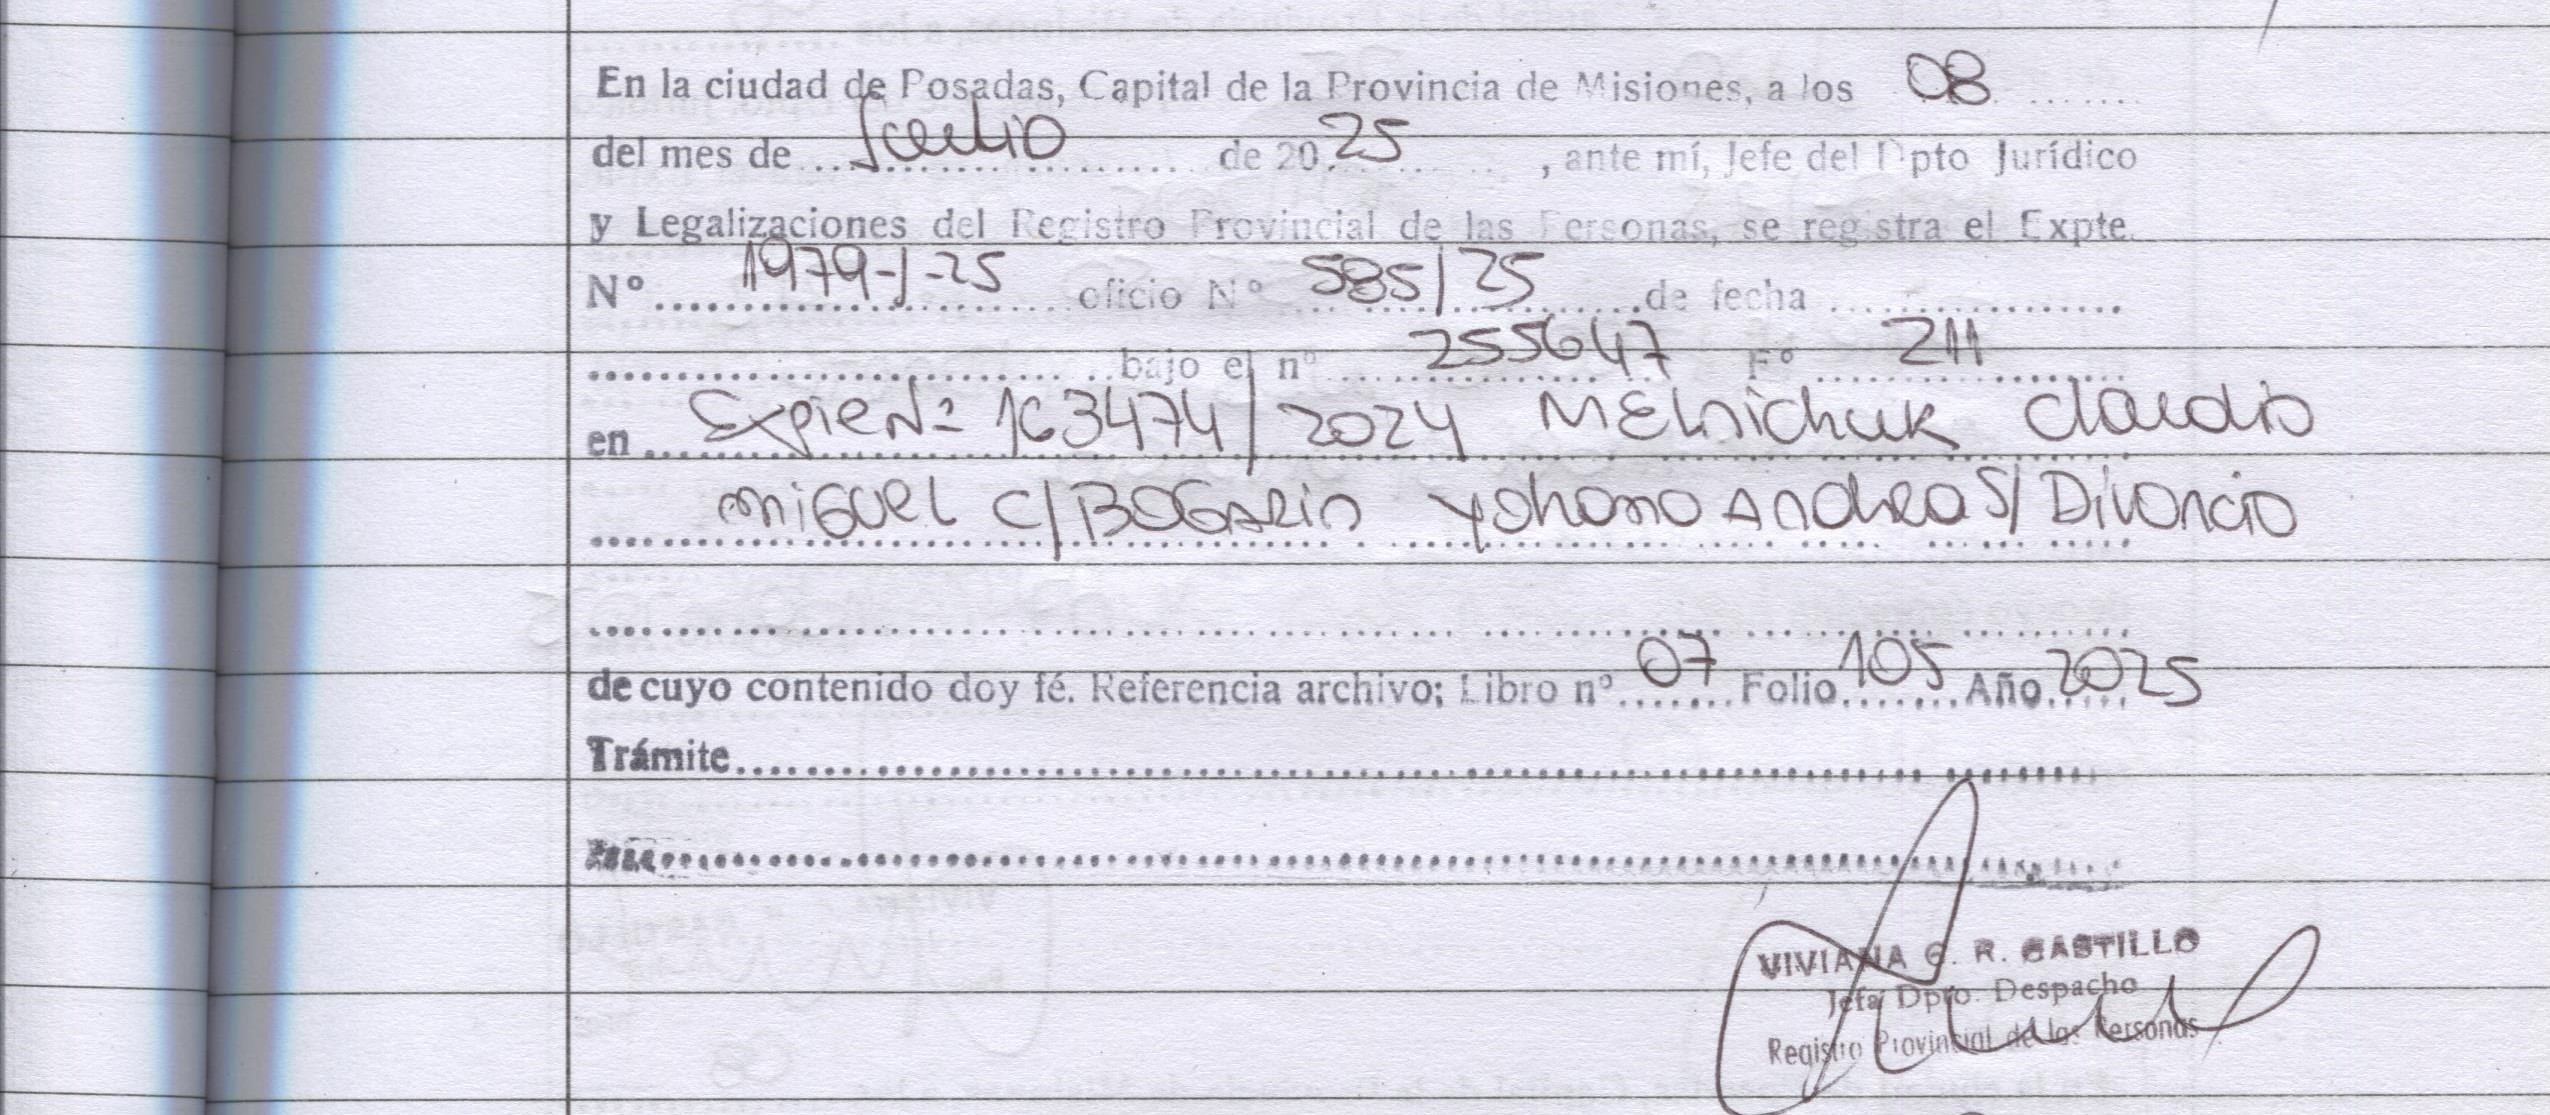 En la ciudad de Posadas, Capital de la Provincia de Misiones, a los 08
del mes de Julio de 2025, ante mí, Jefe del Dpto Jurídico
y Legalizaciones del Registro Provincial de las Personas, se registra el Expte.
Nº 1979-J-25 oficio Nº 585/25 de fecha
bajo el nº 255647 Fº 211
en Expte Nº 163474/2024 MELNichuk Claudio
Miguel C/BOGARin Yohana Andrea S/Divorcio
de cuyo contenido doy fé. Referencia archivo; Libro nº 07 Folio 105 Año 2025
Trámite
VIVIANA G. R. CASTILLO
Jefa Dpto. Despacho
Registro Provincial de las Personas